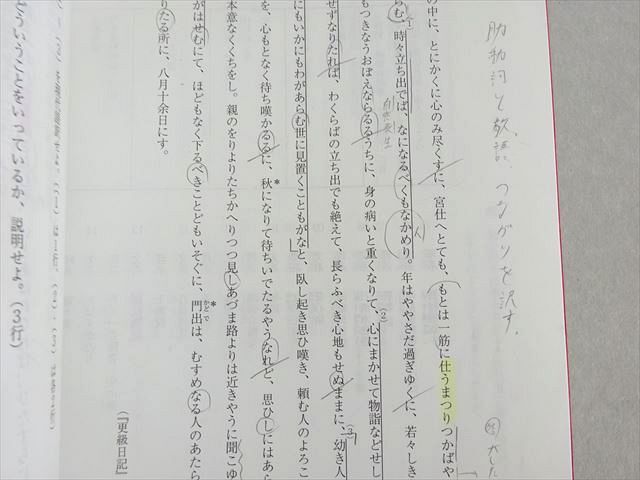 助動詞と敬語、つながりを訳す。
の中に、とにかくに心のみ尽くすに、宮仕へとても、もとは一筋に仕うまつりつかばや
らむ、時々立ち出でば、なになるべくもなかめり。年はややさだ過ぎゆくに、若々しき
もつきなうおぼえならるるうちに、身の病いと重くなりて、心にまかせて物詣などせし
せずなりたれば、わくらばの立ち出でも絶えて、長らふべき心地もせぬままに、幼き人
にもいかにもわがあらむ世に見置くこともがなと、臥し起き思ひ嘆き、頼む人のよろこ
を、心もとなく待ち嘆かるるに、秋になりて待ちいでたるやうなれど、思ひしにはあら
本意なくくちをし。親のをりよりたちかへりつつ見しあづま路よりは近きやうに聞こゆ
がはせむにて、ほどもなく下るべきことどもいそぐに、門出は、むすめなる人のあたら
りたる所に、八月十余日にす。
(『更級日記』
どういうことをいっているか、説明せよ。(3行)